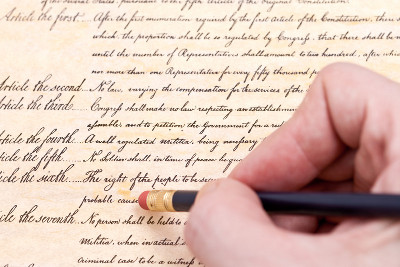 of the several States, pursuant to the fifth Article of the original Constitution.
Article the first... After the first enumeration required by the first Article of the Constitution, there s
which the proportion shall be so regulated by Congress, that there shall be n
until the number of Representatives shall amount to two hundred, after whi
nor more than one Representative for every fifty thousand p
Article the second No law, varying the compensation for the services of the
Article the third... Congress shall make no law respecting an establishmen
assemble, and to petition the Government for a red
Article the fourth.. A well regulated militia, being necessary
Article the fifth... No Soldier shall, in time of peace be qua
Article the sixth.... The right of the people to be secu
probable cause
Article the seventh. No person shall be held to
Militia, when in actual s
criminal case to be a witness